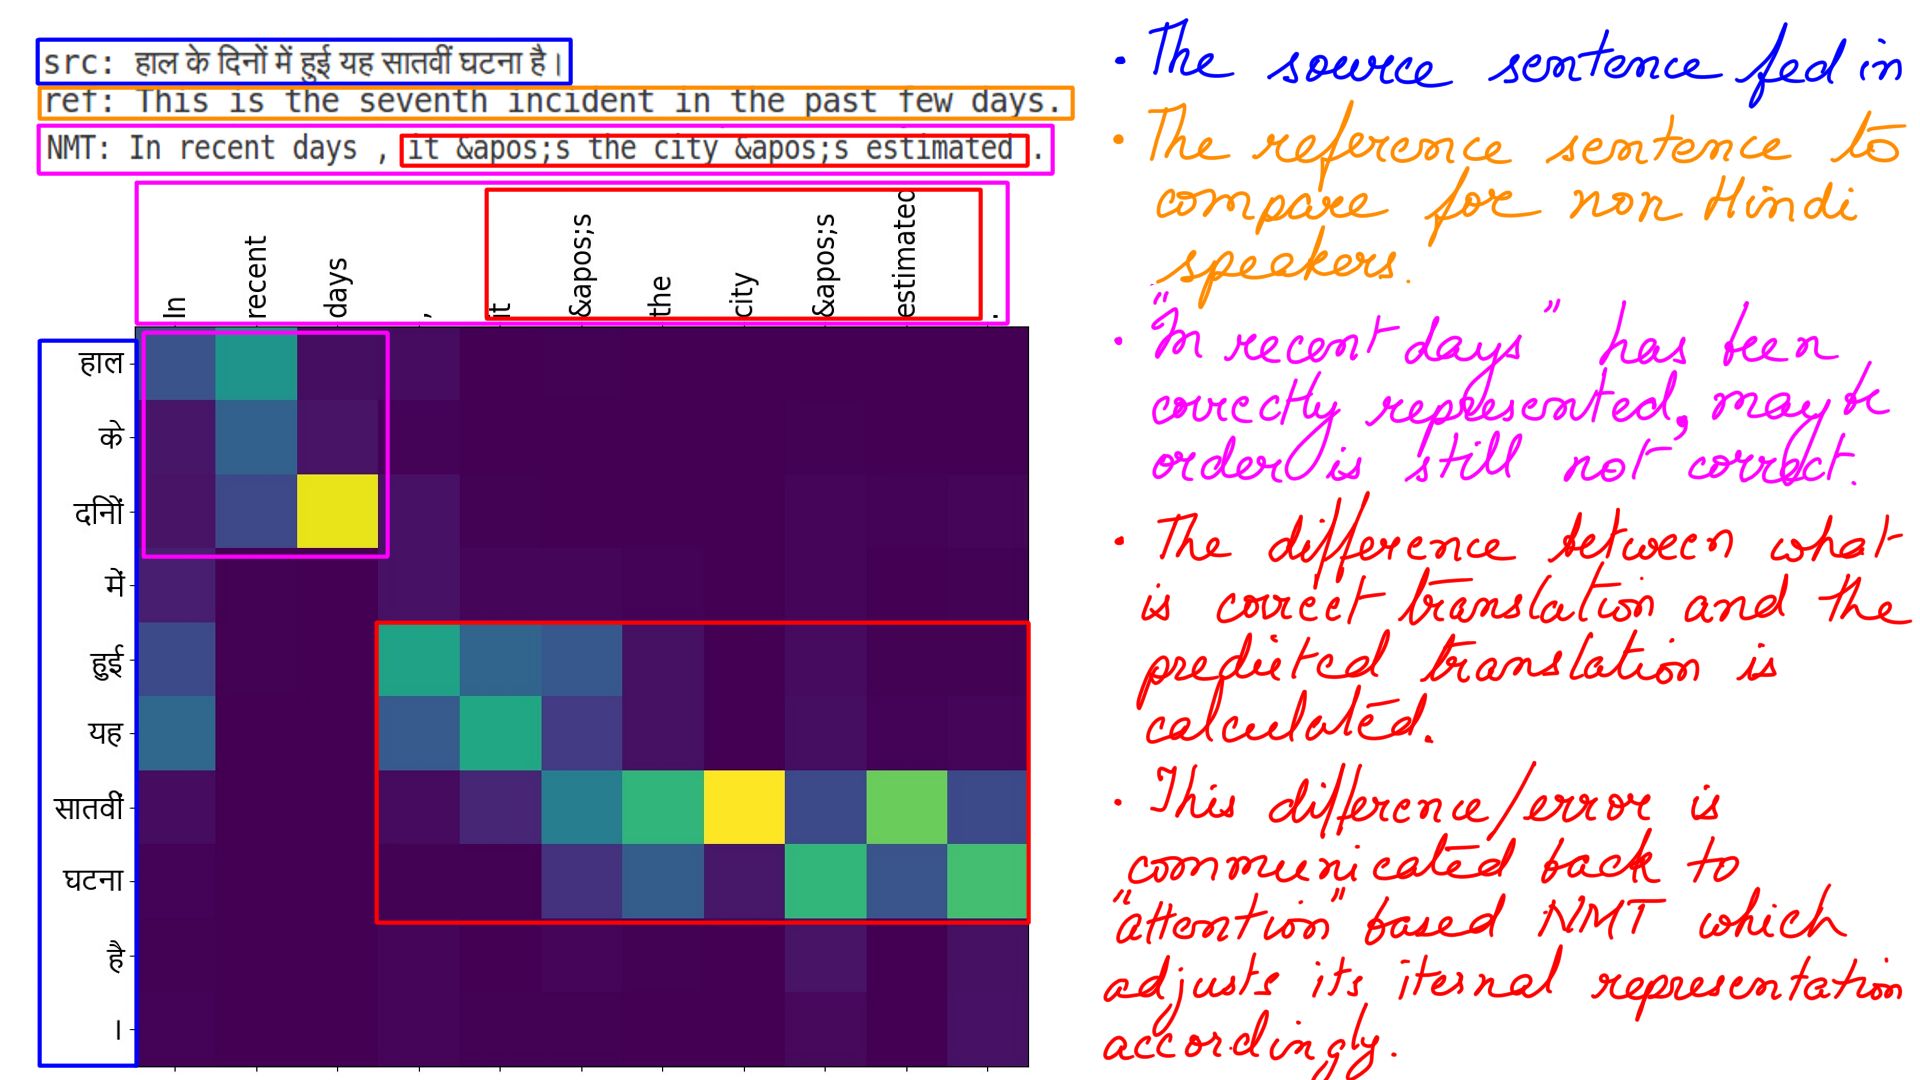 src: हाल के दिनों में हुई यह सातवीं घटना है।
ref: This is the seventh incident in the past few days.
NMT: In recent days , it &apos;s the city &apos;s estimated .
In
recent
days
,
it
&apos;s
the
city
&apos;s
estimated
.
हाल
के
दिनों
में
हुई
यह
सातवीं
घटना
है
।
• The source sentence fed in
• The reference sentence to
compare for non Hindi
speakers.
• "In recent days" has been
correctly represented, maybe
order is still not correct.
• The difference between what
is correct translation and the
predicted translation is
calculated.
• This difference/error is
communicated back to
"attention" based NMT which
adjusts its iternal representation
accordingly.